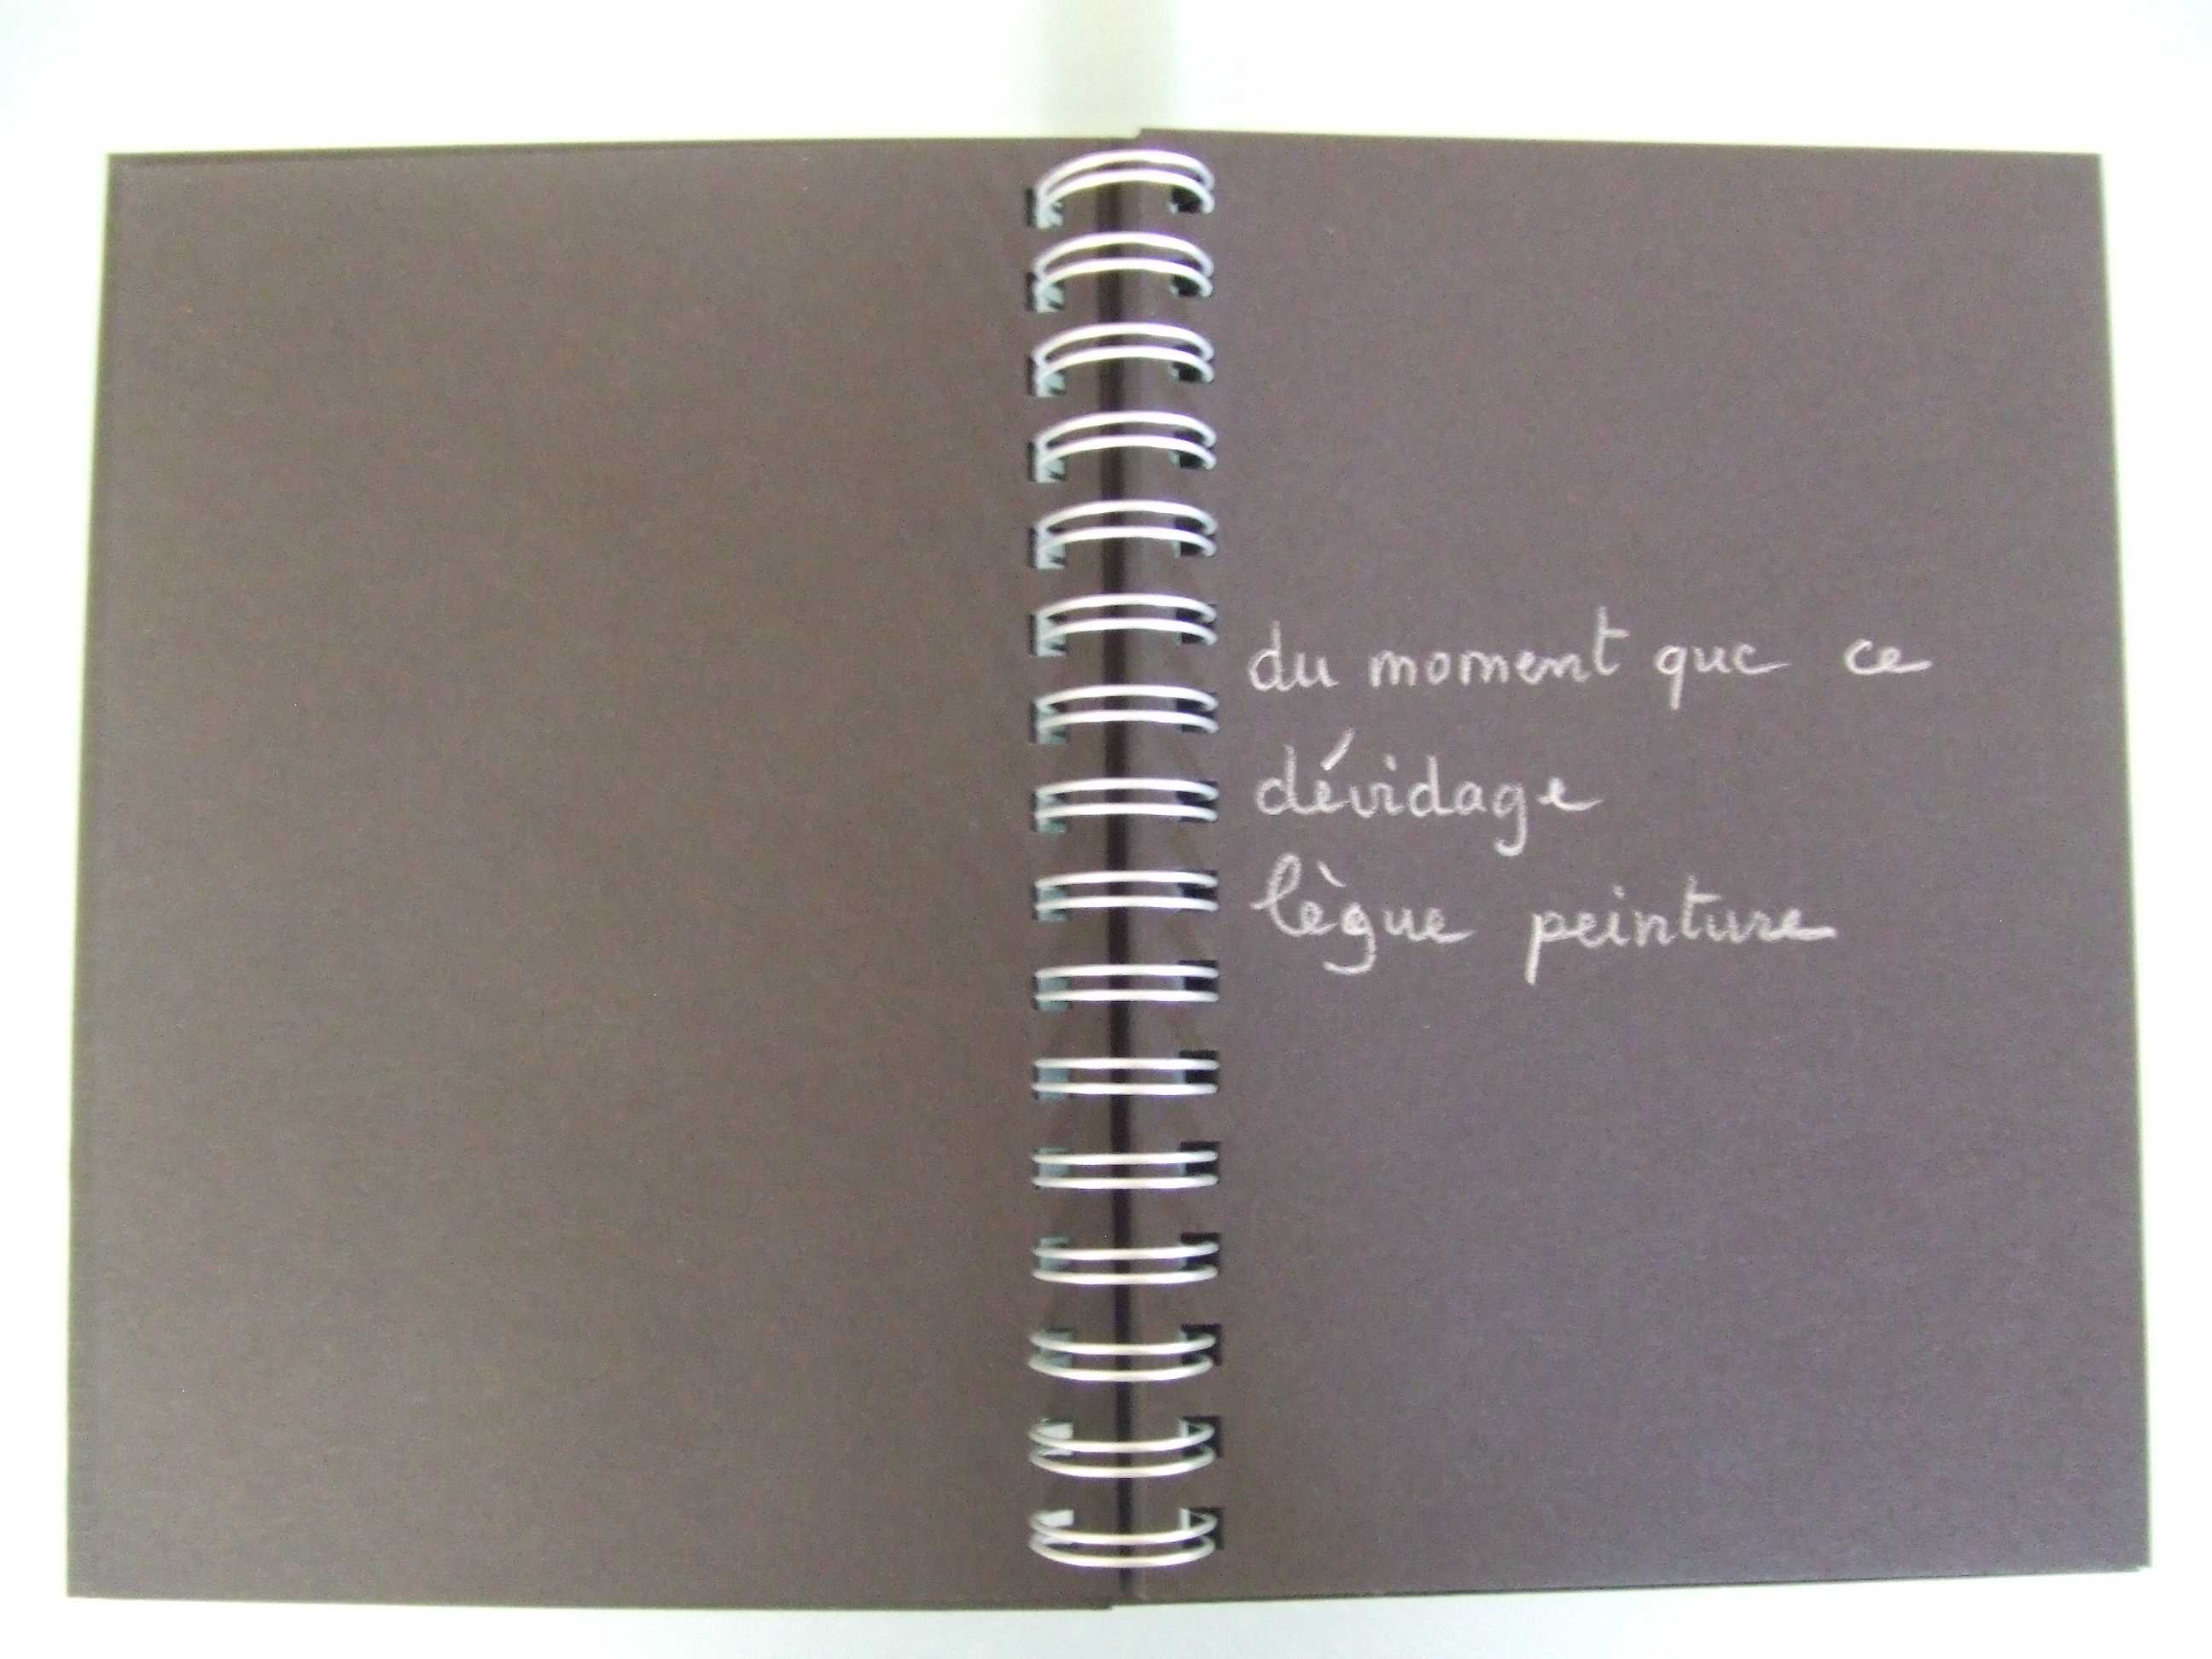 du moment que ce
dévidage
lègue peinture